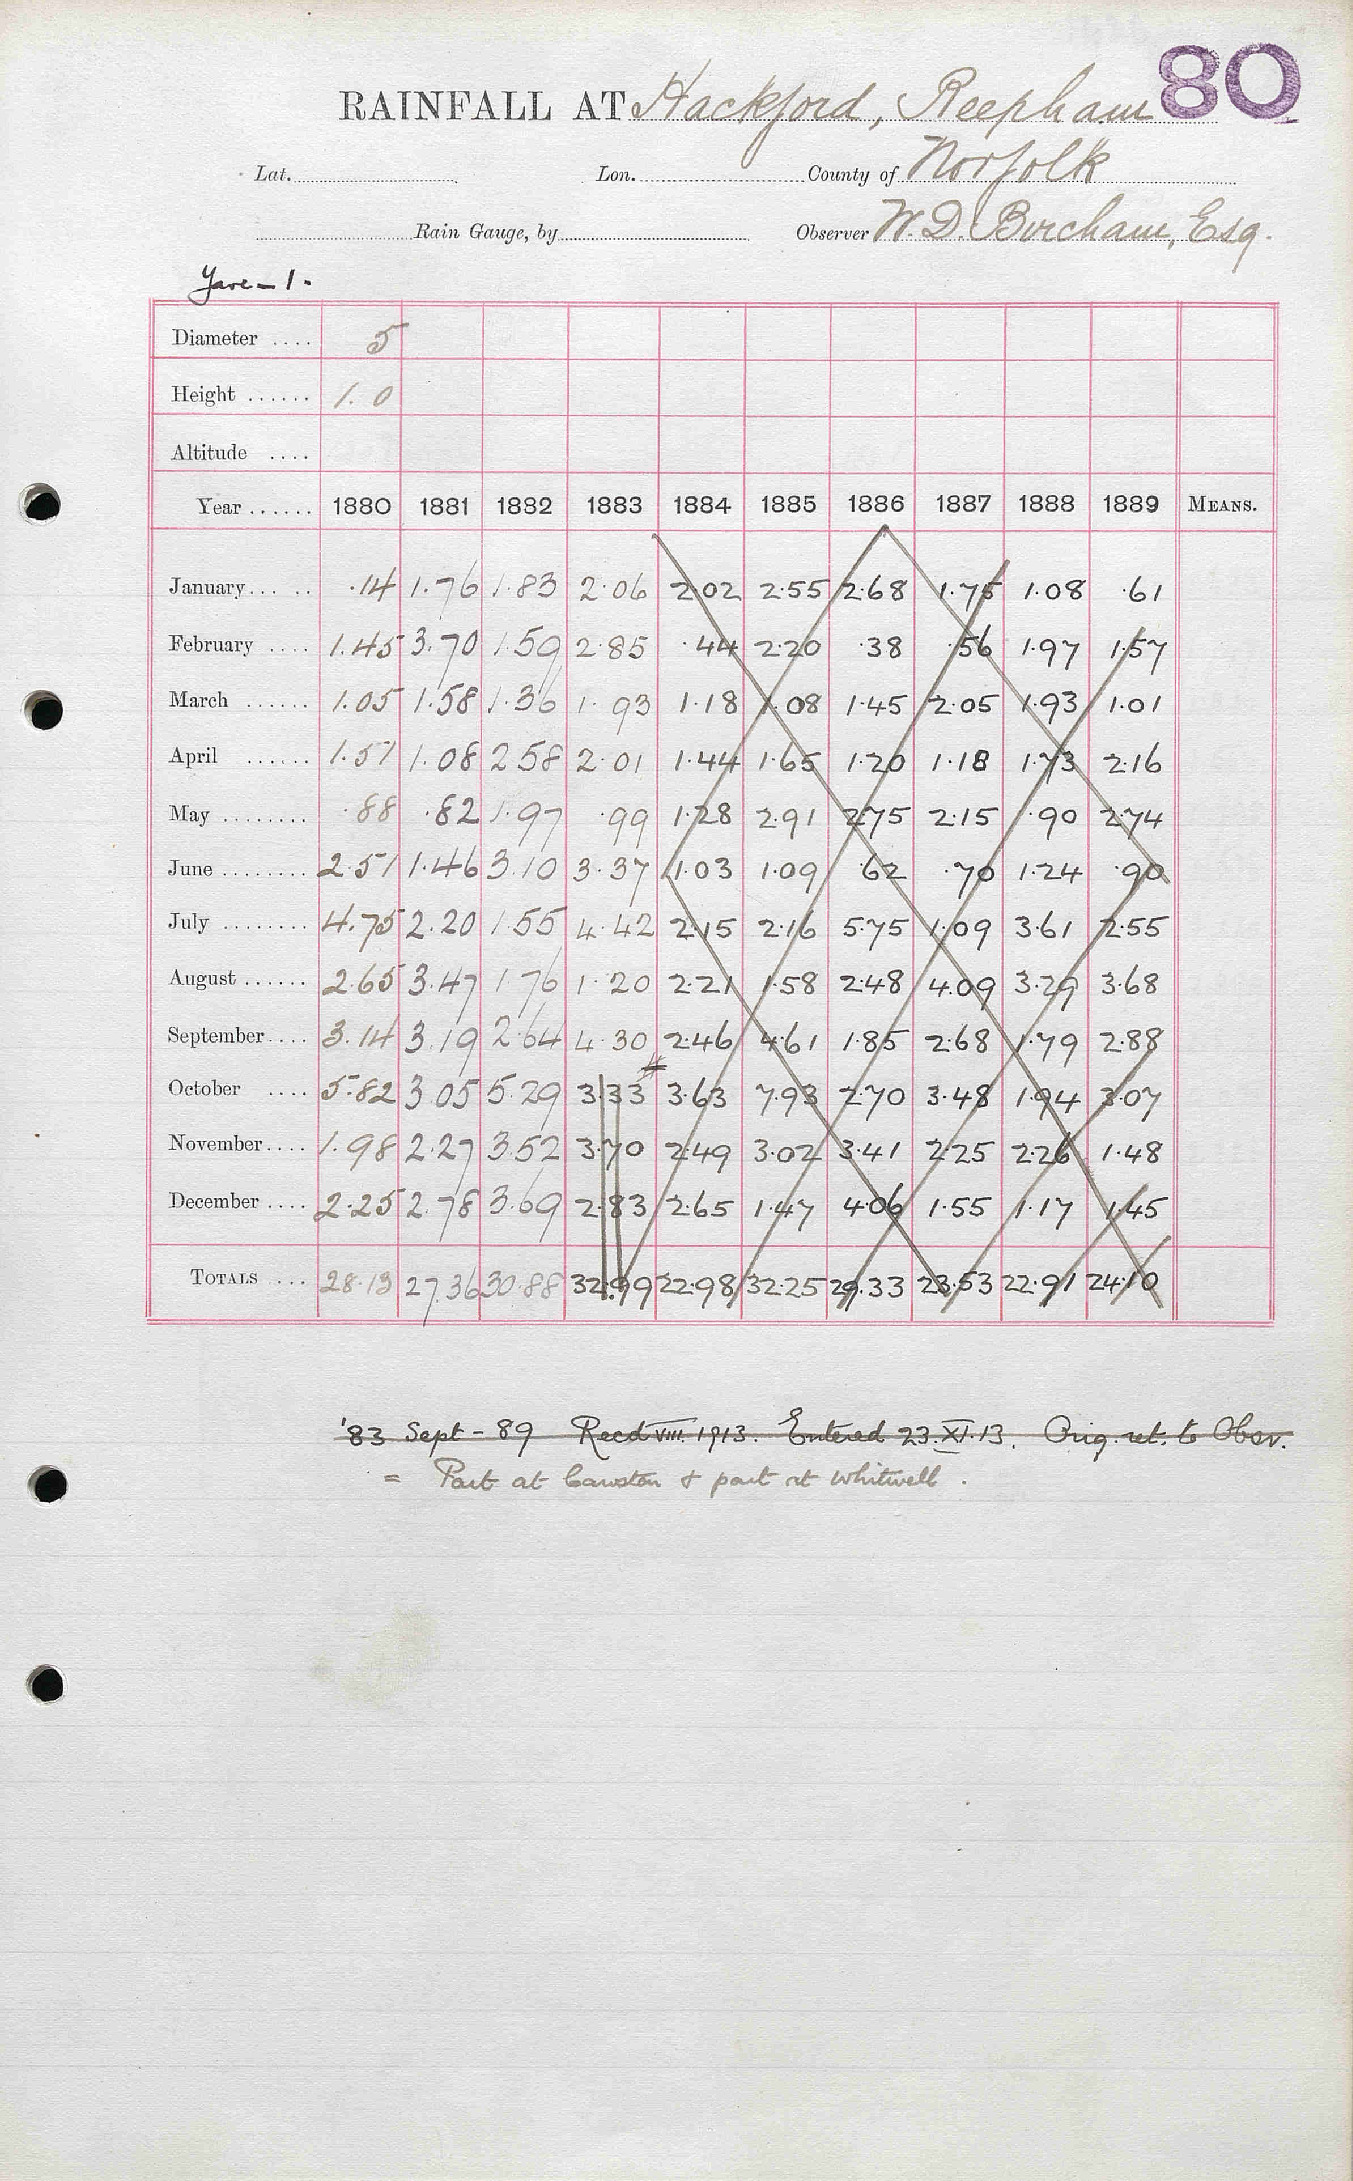 80
RAINFALL AT Hackford, Reepham
Lat. Lon. County of Norfolk
Rain Gauge, by Observer W. D. Bircham, Esq.
Yare - 1.
Diameter .... 5
Height ...... 1.0
Altitude ....
Year ...... 1880 1881 1882 1883 1884 1885 1886 1887 1888 1889 MEANS.
January ..... .14 1.76 1.83 2.06 2.02 2.55 2.68 1.75 1.08 .61
February .... 1.45 3.70 1.59 2.85 .44 2.20 .38 .56 1.97 1.57
March ...... 1.05 1.58 1.36 1.93 1.18 1.08 1.45 2.05 1.93 1.01
April ...... 1.51 1.08 2.58 2.01 1.44 1.65 1.20 1.18 1.73 2.16
May ........ .88 .82 1.97 .99 1.28 2.91 2.75 2.15 .90 2.74
June ........ 2.51 1.46 3.10 3.37 1.03 1.09 .62 .70 1.24 .90
July ........ 4.75 2.20 1.55 4.42 2.15 2.16 5.75 1.09 3.61 2.55
August ...... 2.65 3.47 1.76 1.20 2.21 1.58 2.48 4.09 3.29 3.68
September .... 3.14 3.19 2.64 4.30 2.46 4.61 1.85 2.68 1.79 2.88
October .... 5.82 3.05 5.29 3.33 # 3.63 7.93 2.70 3.48 1.94 3.07
November .... 1.98 2.27 3.52 3.70 2.49 3.02 3.41 2.25 2.26 1.48
December .... 2.25 2.78 3.69 2.83 2.65 1.47 4.06 1.55 1.17 1.45
TOTALS .... 28.13 27.36 30.88 32.99 22.98 32.25 29.33 23.53 22.91 24.10
'83 Sept - 89 Recd VIII. 1913. Entered 23.XI.13. Orig. ret. to Obsr.
= Part at Cawston & part at Whitwell.